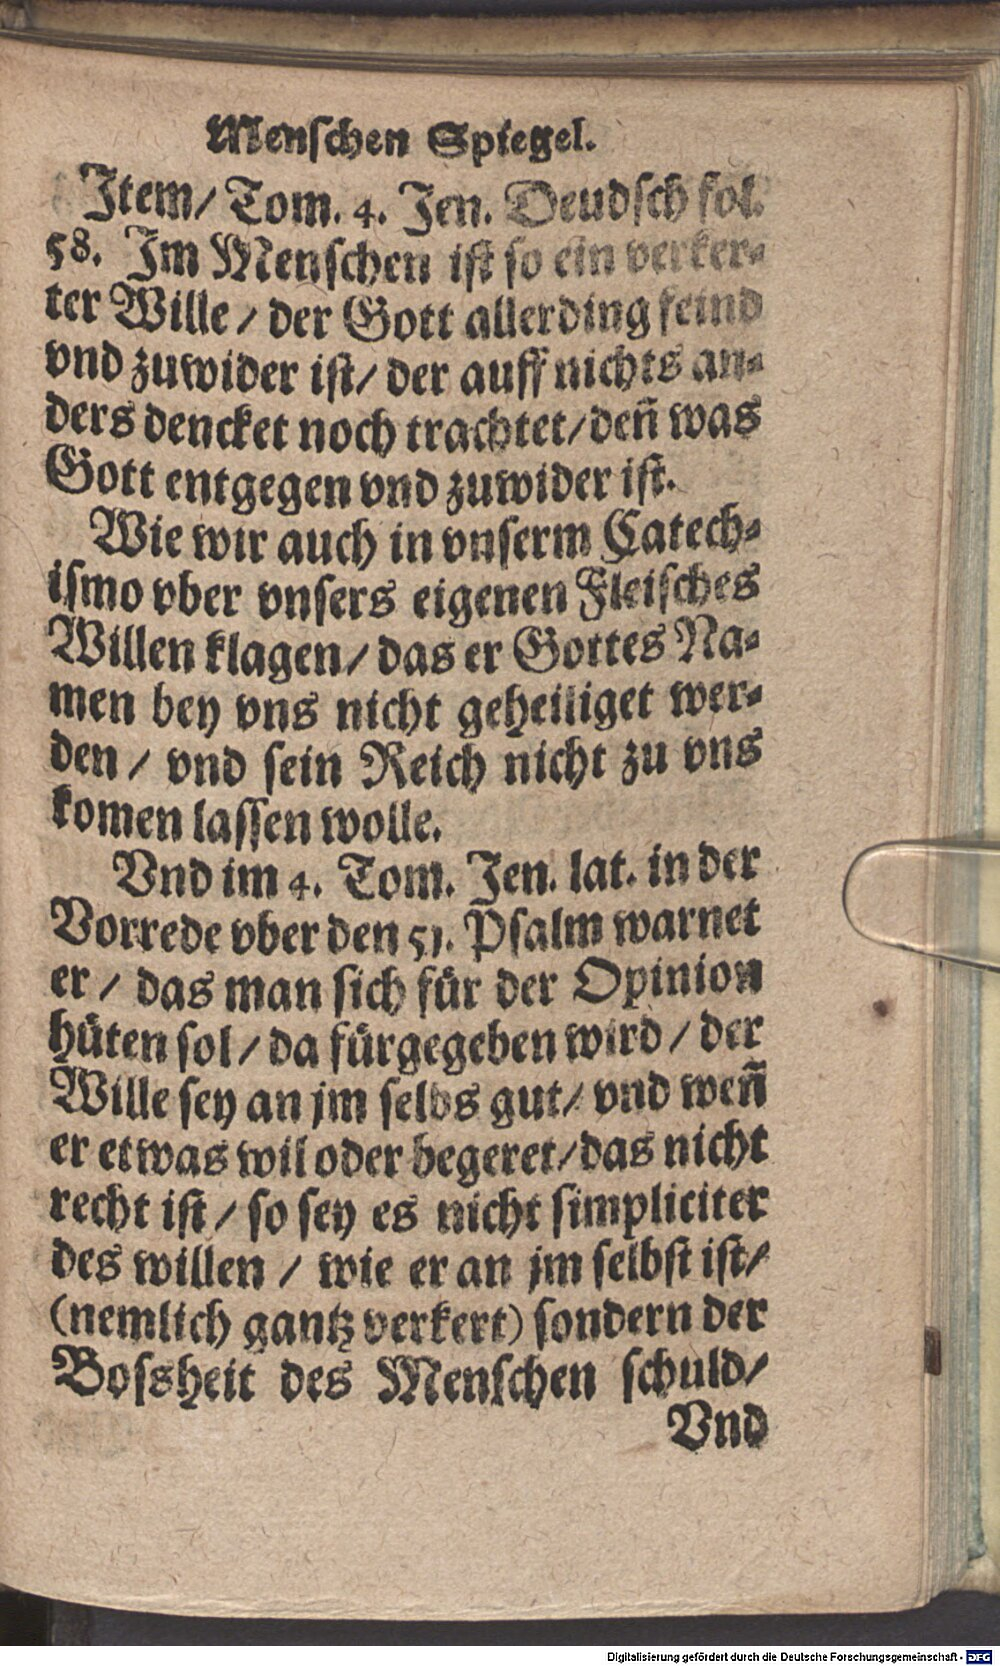 Menschen Spiegel.
Item/ Tom. 4. Jen. Deudsch fol.
58. Im Menschen ist so ein verker-
ter Wille / der Gott allerding feind
vnd zuwider ist/ der auff nichts an-
ders dencket noch trachtet/ deñ was
Gott entgegen vnd zuwider ist.
Wie wir auch in vnserm Catech-
ismo vber vnsers eigenen Fleisches
Willen klagen/ das er Gottes Na-
men bey vns nicht geheiliget wer-
den / vnd sein Reich nicht zu vns
komen lassen wolle.
Vnd im 4. Tom. Jen. lat. in der
Vorrede vber den 51. Psalm warnet
er / das man sich für der Opinion
hüten sol / da fürgegeben wird / der
Wille sey an jm selbs gut/ vnd weñ
er etwas wil oder begeret/ das nicht
recht ist / so sey es nicht simpliciter
des willen / wie er an jm selbst ist/
(nemlich gantz verkert) sondern der
Bossheit des Menschen schuld/
Vnd
Digitalisierung gefördert durch die Deutsche Forschungsgemeinschaft - DFG